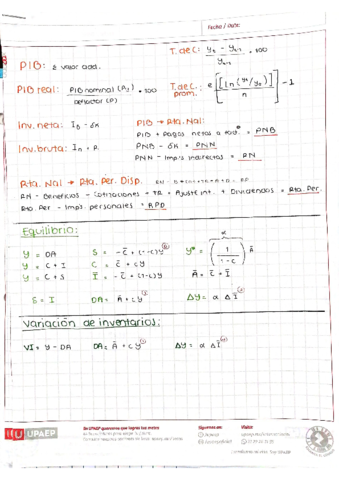 Fecha / Date:
PIB: Σ valor add.
T. de C.: (y₁ - yₜ₋₁) / yₜ₋₁ * 100
PIB real: PIB nominal (P₂) / deflactor (P) * 100
T. de C. prom.: e [[ln(yₜ/y₀)] / n] - 1
Inv. neta: I_b - δK
Inv. bruta: Iₙ + R.
PIB → Rta. Nal:
PIB + Pagos netos a = PNB
PNB - δK = PNN
PNN - Imp's Indirectos = RN
Rta. Nal → Rta. Per. Disp.
RN - Beneficios - Cotizaciones + TR + Ajuste int. + Dividendos = Rta. Per.
Rta. Per - Imp's personales = RPD
Equilibrio:
Y = DA
S = -C̄ + (1-c)Y
Y* = (1 / (1-c)) Ā
α
Y = C + I
C = C̄ + cY
Y = C + S
Ī = -C̄ + (1-c)Y
Ā = C̄ + Ī
S = I
DA = Ā + cY
ΔY = α ΔĪ
Variación de inventarios:
VI = Y - DA
DA = Ā + cY
ΔY = α ΔĪ
UPAEP
En UPAEP queremos que logres tus metas
Síguenos en:
Visita: